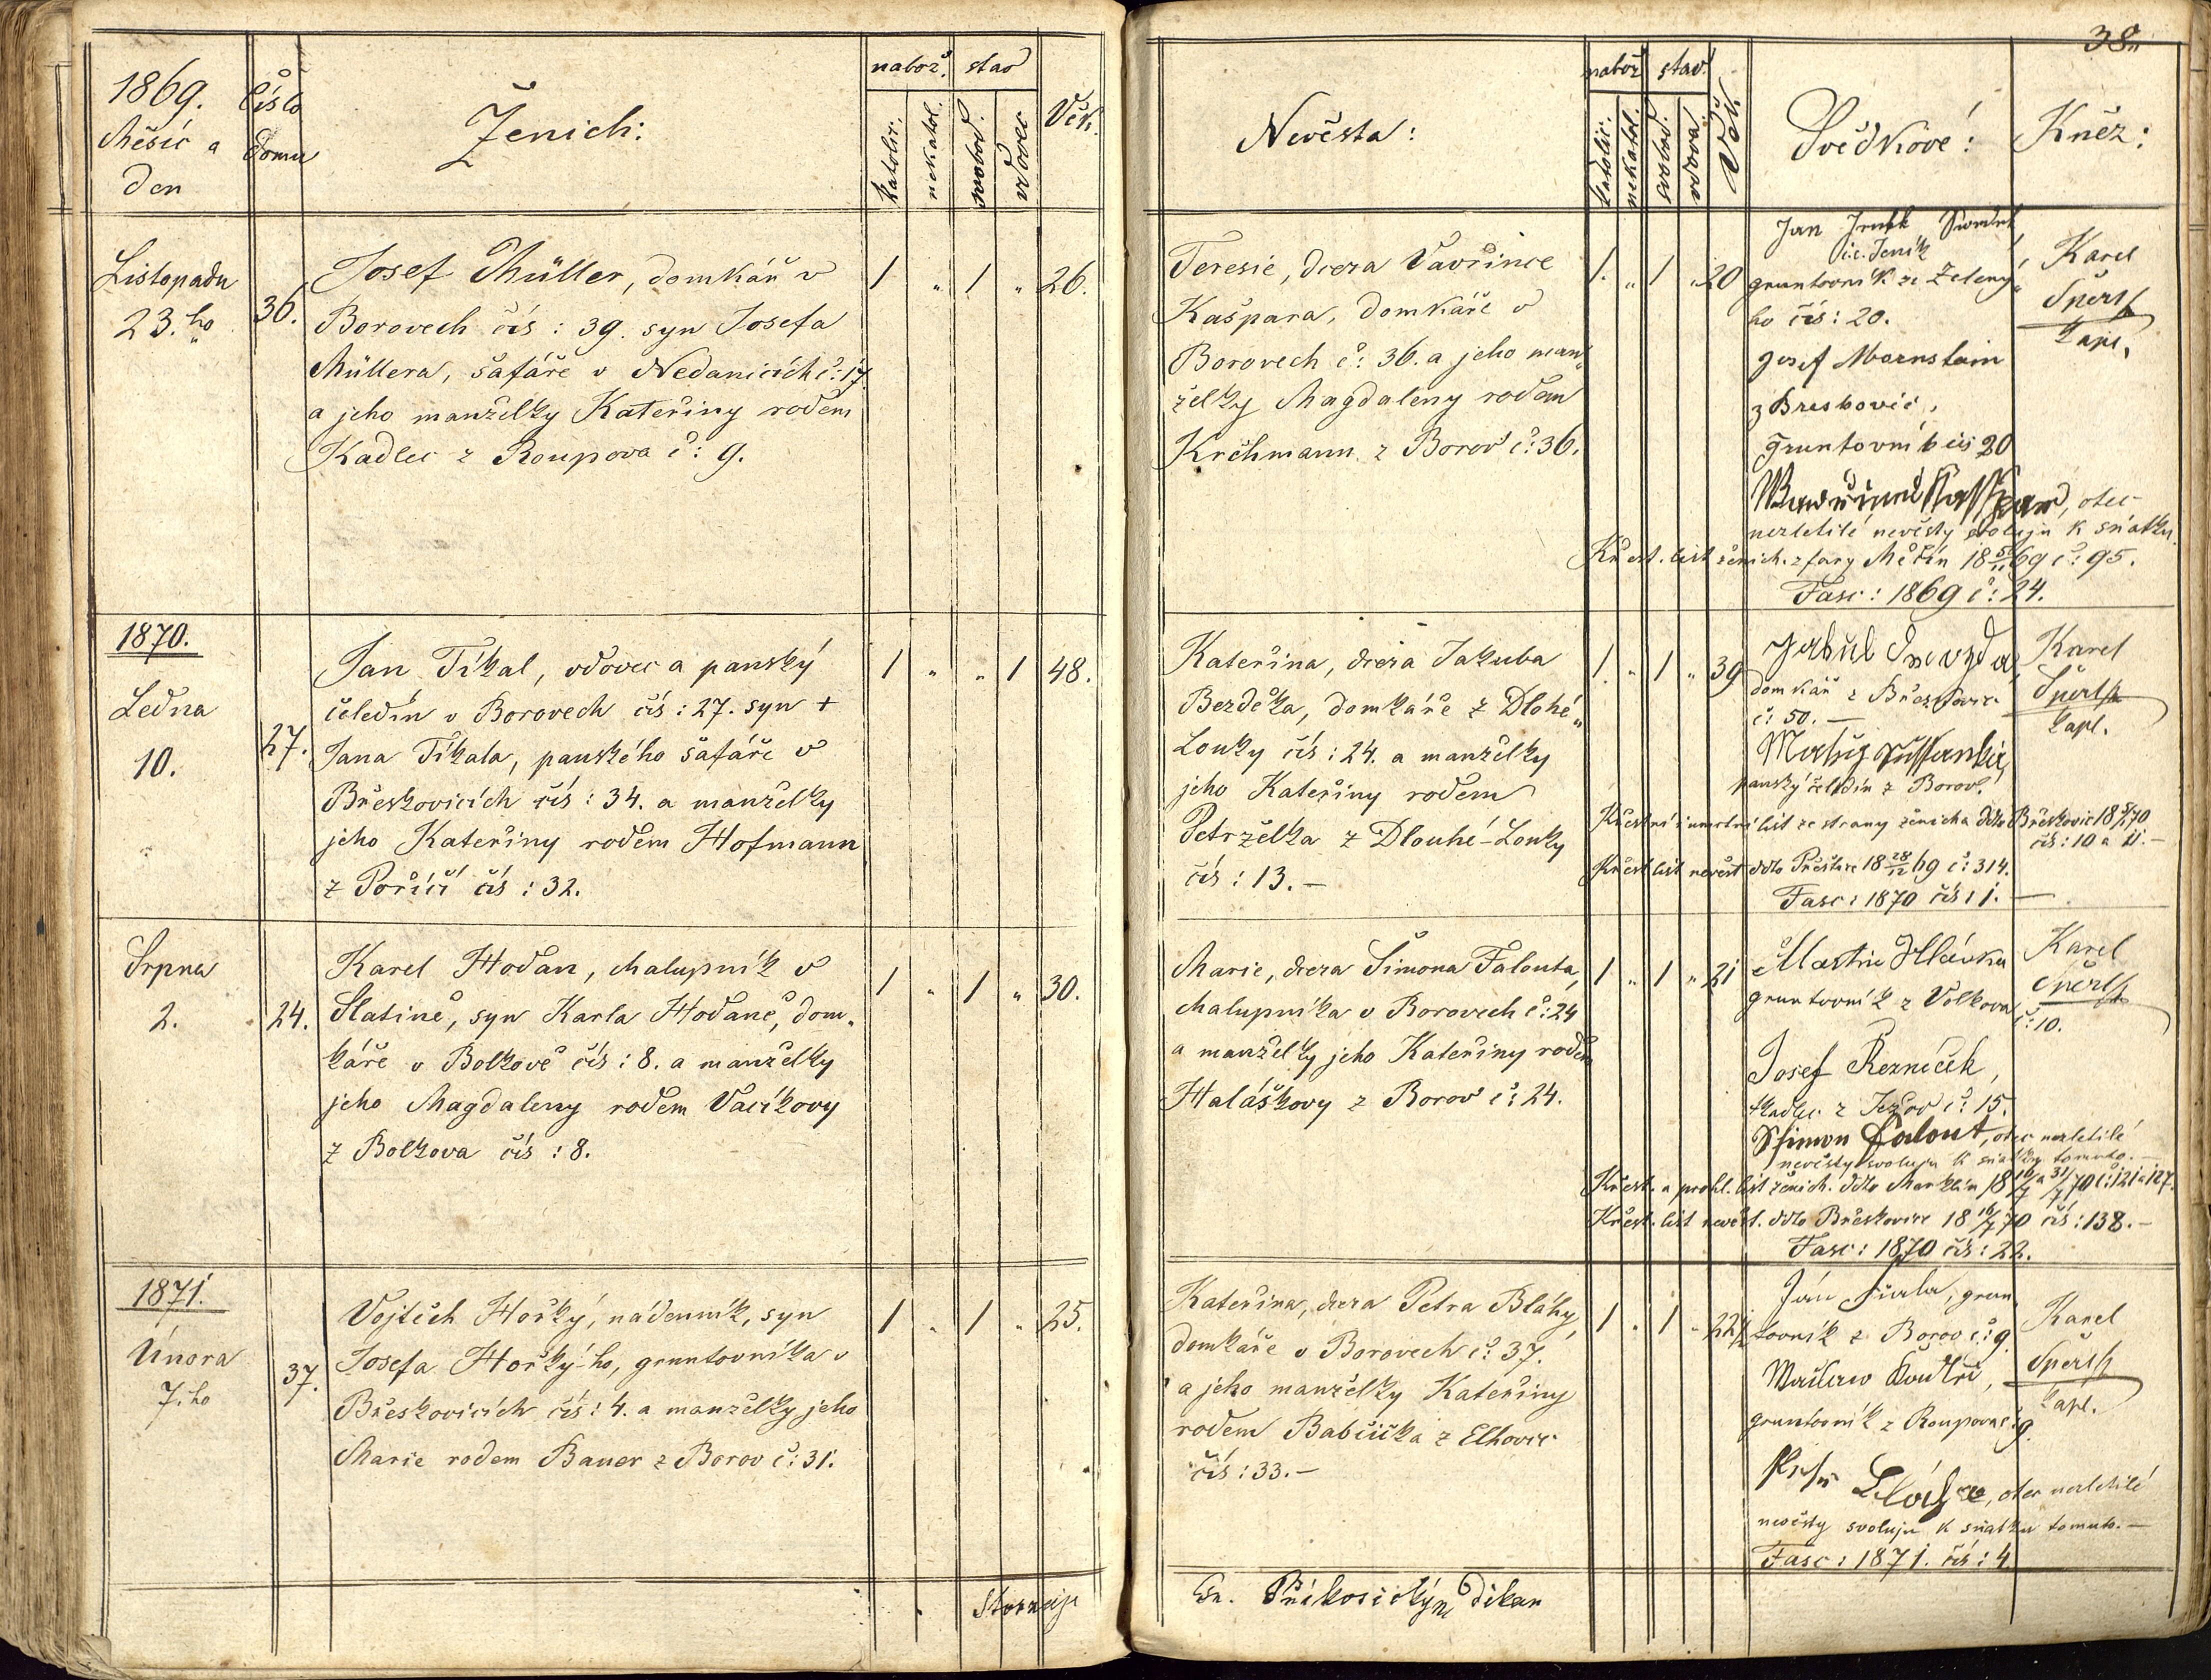 38.
1869.
Měsíc a
den
Číslo
domu
Ženich:
nabož. stav
katolic.
nekatol.
svobod.
vdovec
Věk.
Nevěsta:
nabož stav.
katolic.
nekatol.
svobod.
vdova
Věk
Svědkové:
Kněz:
Listopadu
23.ho
36.
Josef Müller, domkář v
Borovech čís: 39. syn Josefa
Müllera, šafáře v Nedanicích č: 17.
a jeho manželky Kateřiny rodem
Kadlec z Roupova č: 9.
1 „ 1 „ 26.
Teresie, dcera Vavřince
Kašpara, domkáře v
Borovech č: 36. a jeho man„
želky Magdaleny rodem
Krčhmann z Borov č: 36.
1. „ 1 „ 20
Jan
i.e. Jeník
gruntovník ze Zelený„
ho čís: 20.
Josef
z
gruntovník čís 20
otec
nezletilé nevěsty svoluju k sňatku.
Křest. list ženich. z fary Měčín 18 69 č: 95.
Fasc: 1869 č: 24.
Karel
Šperl
kapl.
1870.
Ledna
10.
27.
Jan Tikal, vdovec a panský
čeledín v Borovech čís: 27. syn +
Jana Tikala, panského šafáře v
Břeskovicích čís: 34. a manželky
jeho Kateřiny rodem Hofmann
z Poříčí čís: 32.
1 „ „ 1 48.
Kateřina, dcera Jakuba
Bezděka, domkáře z Dlohé„
Louky čís: 24. a manželky
jeho Kateřiny rodem
Petrželka z Dlouhé-Louky
čís: 13. —
1. „ 1 „ 39
domkář z Břeskovic
č: 50. —
panský čeledín z Borov.
Křestní i úmrtní list ze strany ženicha ddto Břeskovic 18 70
čís: 10 a 11. —
Křest list nevěst ddto Přeštice 18 28/12 69 č: 314.
Fasc: 1870 čís: 1. —
Karel
Šperl
kapl.
Srpna
2.
24.
Karel Hodan, chalupník v
Slatině, syn Karla Hodaně, dom„
káře v Bolkově čís: 8. a manželky
jeho Magdaleny rodem Vacíkovy
z Bolkova čís: 8.
1 „ 1 „ 30.
Marie, dcera Šimona Falouta,
chalupníka v Borovech č: 24
a manželky jeho Kateřiny rodem
Haláškovy z Borov č: 24.
1 „ 1 „ 21
Martin Hlávka
gruntovník z Volkova
č: 10.
Josef Řezníček,
tkadlec z Ježov č: 15.
Schimon Falout, otec nezletilé
nevěsty svoluju k sňatku tomuto. —
Křest. a prohl. list ženich. ddto Merklín 18 16/7 a 31/7 70 č: 121 a 127.
Křest. list nevěst. ddto Břeskovice 18 16/7 70 čís: 138. —
Fasc: 1870 čís: 22.
Karel
Šperl
1871.
Února
7.ho
37.
Vojtěch Horký, nádenník, syn
Josefa Horký-ho, gruntovníka v
Břeskovicích čís: 4. a manželky jeho
Marie rodem Bauer z Borov č: 31.
1 „ 1 „ 25.
Kateřina, dcera Petra Bláhy,
domkáře v Borovech č: 37.
a jeho manželky Kateřiny
rodem Babička z Elhovic
čís: 33. —
1 „ 1 „ 22 1/2
Ján Fiala, grun„
tovník z Borov č: 9.
gruntovník z Roupova č: 9.
Petr Bláha, otec nezletilé
nevěsty svoluju k sňatku tomuto. —
Fasc: 1871. čís: 4.
Karel
Šperl
kapl.
Stornuje
Přikosický děkan